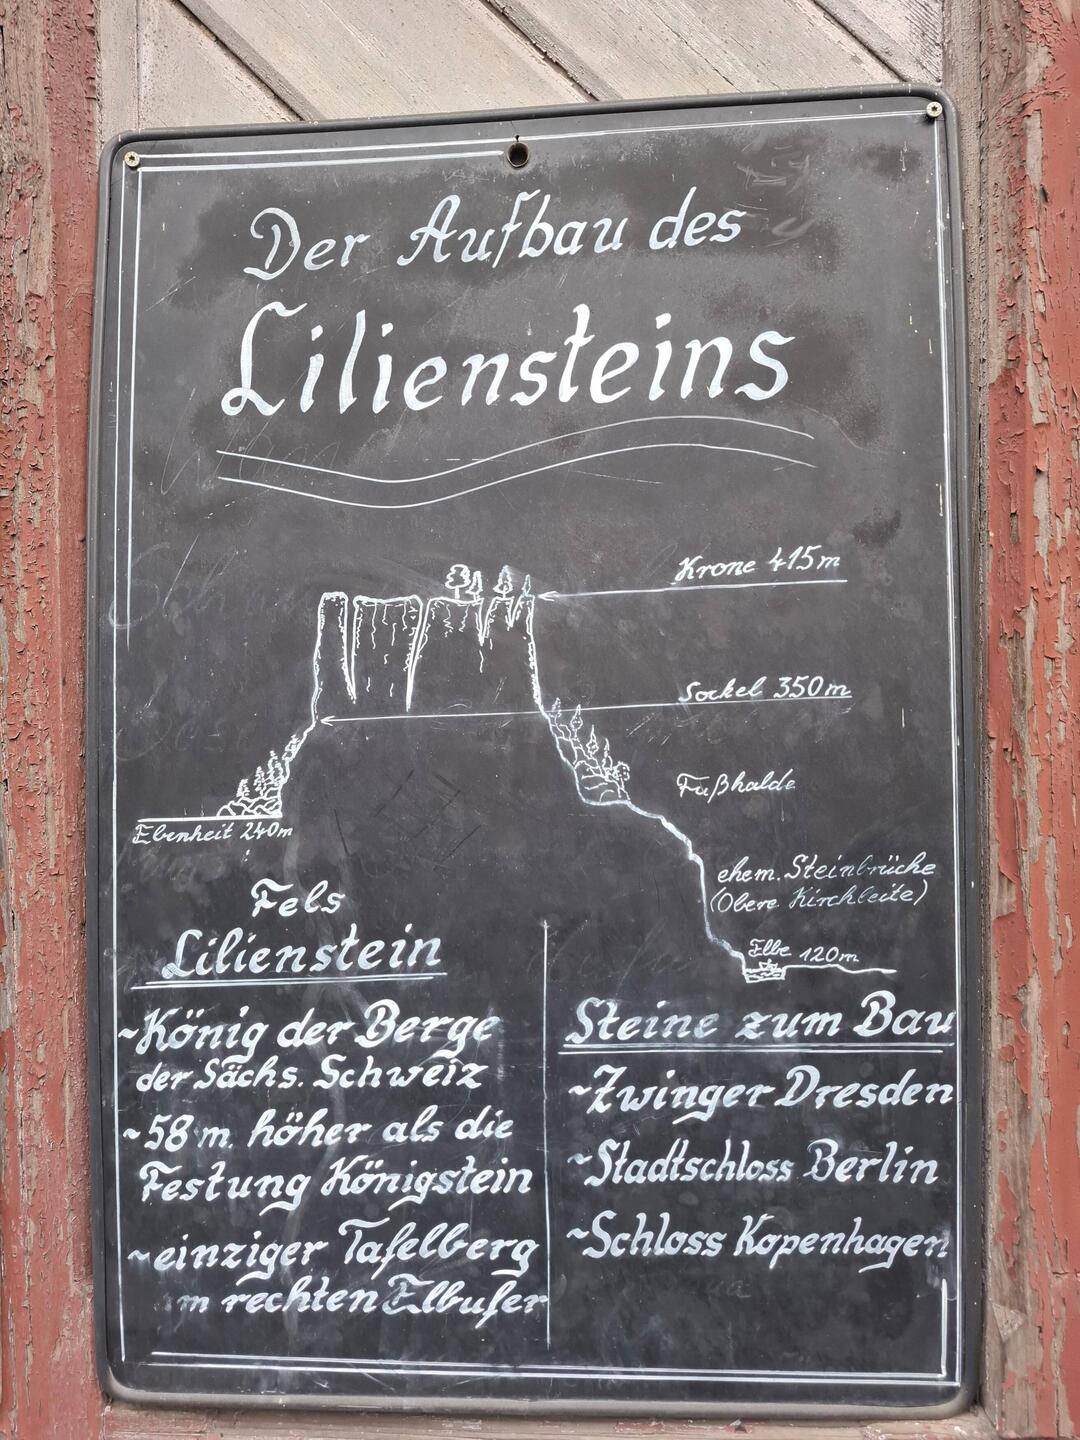 Der Aufbau des
Liliensteins
Krone 415m
Sockel 350m
Fußhalde
Ebenheit 240m
ehem. Steinbrüche
(Obere Kirchleite)
Elbe 120m
Fels
Lilienstein
~König der Berge
der Sächs. Schweiz
~58 m. höher als die
Festung Königstein
~einziger Tafelberg
am rechten Elbufer
Steine zum Bau
~Zwinger Dresden
~Stadtschloss Berlin
~Schloss Kopenhagen